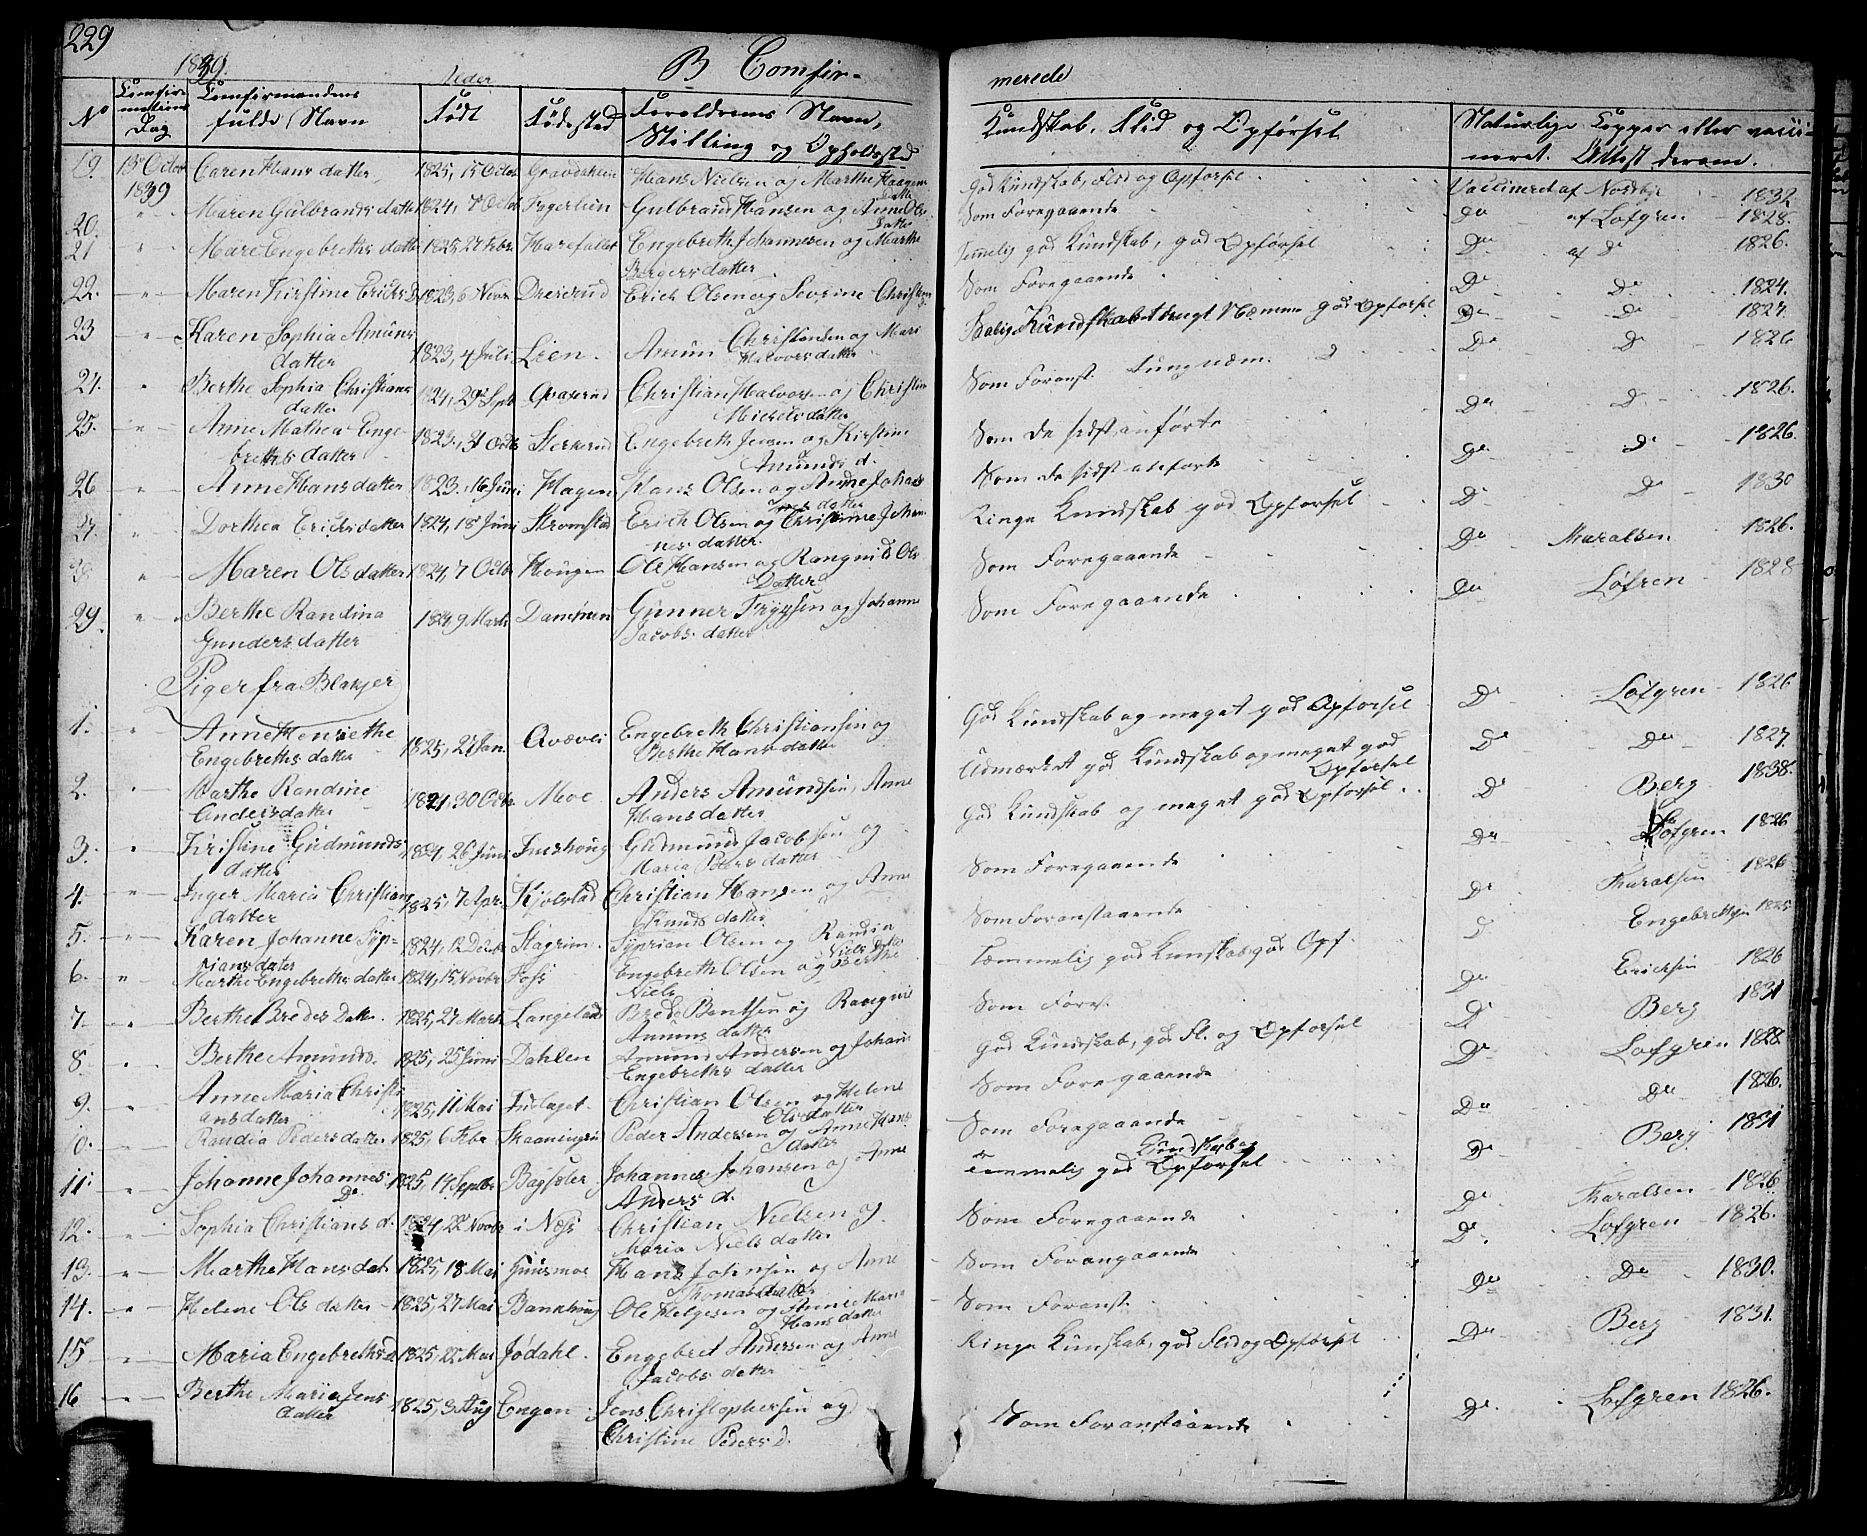 229
1839.
B Comfir-
merede
No
Comfir-
mations
Dag
Comfirmandens
fulde Navn
Født
Fødested
Foreldrenes Navn,
Stilling og Opholdssted
Kundskab, Flid og Opførsel
Naturlige Copper eller vacci-
neret. Attest derom.
19. 13 Octbr 1839 Caren Hans datter 1825, 15 Octbr Hans Nielsen og Marthe Haagens
datter
God Kundskab, Flid og Opførsel Vaccineret af Nordbye 1832
20. Maren Gulbrands datter 1824, Octbr Gulbrand Hansen og Anne Ols
datter
Som Foregaaende Do af Lofgren 1828.
21 Mare Engebreths datter 1825, 27 Febr. Engebreth Johannesen og Marthe
Bergers datter
Temmelig god Kundskab, god Opførsel Do af Do 1826.
22. Maren Kirstine Erichs D 1823, 6 Novr Dreierud Erich Olsen og Severine Christens
Som Foregaaende Do Do 1824.
23 Karen Sophia Amuns
datter 1823, 4 Juli Lien. Amun Christensen og Mari
Halvorsdatter
Kundskab tungt Nemme god Opførsel Do Do 1827.
Do Do 1826
24. Berthe Sophia Christians
datter 1824, 29 Sptb Christian Halvors og Christine
Michelsdatter
Som Foranst. tung nem. Do D 1826.
25. Anne Mathea Enge-
breths datter 1823, 31 Octb Engebreth Jensen og Kirstine
Amunds d.
Som de sidst anførte Do Do 1826.
26 Anne Hans datter 1823, 16 Juni Hagen Hans Olsen og Anne Johan
nes datter
Som de sidst anførte D D 1830
27. Dorthea Erichsdatter 1824, 18 Juni Erich Olsen og Christine Johan-
nes datter.
Ringe Kundskab god Opførsel Do Tharalsen 1826.
28 Maren Ols datter 1824, 7 Octbr Hougen Ole Hansen og Rangnild Ols
Datter
Som Foregaaende Do Løfren 1828
29. Berthe Randina
Gunders datter 1824, 9 Marts Gunner Trygsen og Johanne
Jacobs datter
Som Foregaaende
Piger fra Blakjer
1. Anne Henriethe
Engebrettes datter 1825, 27 Jan. Engebreth Christiansen og
Berthe Hans datter
God Kundskab og meget god Opførsel Do Løfgren 1826
2. Marthe Randine
Anders datter 1824, 30 Octr Moe Anders Amundsen, Anne
Hans datter
Udmærket god Kundskab og meget god
Opførsel Do Do 1827.
3. Kristine Gudmunds
datter 1824, 26 Juni Gudmund Jacobsen og
Maria Peders datter
God Kundskab og meget god Opførsel D Berg 1838.
4. Inger Maria Christians
datter 1825, 7 Apr. Kjølstad Christian Hansen og Anne
Knuds datter
Som Foregaaende Do Løfgren 1826
5. Karen Johanne Syp-
rians dater 1824, 12 Decbr Syprian Olsen og Randin
Niels datter
Som Foranstaaende Do Tharalsen 1826
6. Marthe Engebreths datter 1824, 15 Novbr Foss Engebreth Olsen og Berthe
Niels
Temmelig god Kunskab, god Opf. D Engebretsen 1825
7. Berthe Breder Datter. 1825, 27 Marts Brede Bentsen og Rangnil
Amuns datter
Som Forest. Do Ericksen 1826
8. Berthe Amunds. 1825, 25 Juni Dahlen Amund Andersen og Johanne
Engebreths datter
God Kundskab, god Fl. og Opførsel D Berg 1831
9. Anne Maria Christi
ansdatter 1825, 11 Mai Christian Olsen og Helene
Olsdatter
Som Foregaaende Do Lofgren 1828
0. Randia Peders datter 1825, 6 Febr Peder Andersen og Anne Hans
datter
Som Foregaaende Do Do 1826.
11. Johanne Johannes
Dr. 1825, 14 Septbr Johannes Johansen og Anne
Anders d.
Temmelig god Kundskab og
Opførsel Do Berg 1831
12. Sophia Christians d. 1824, 22 Novbr i Næss Christian Nielsen og
Maria Niels datter
Som Foregaaende Do Tharalsen 1826
13. Marthe Hans dat 1825, 18 Mai Hans Johnsen og Anne
Thomasdatter
Som Forangaaende Do. Lofgren 1826.
14. Helene Ols datter 1825, 27 Mai Ole Helgesen og Anne Maria
Hans datter
Som Foranst. Do Do 1830.
15 Maria Engebrethsd 1825, 22 Mai Jødahl. Engebret Andersen og Anne
Jacobs datter
Ringe Kunskab, god Flid og Opførsel Do Berg 1831.
16 Berthe Maria Jens
datter 1825, 3 Aug Engen Jens Christophersen og
Christine Peders d.
Som Foranstaaende Do. Lofgren 1826.